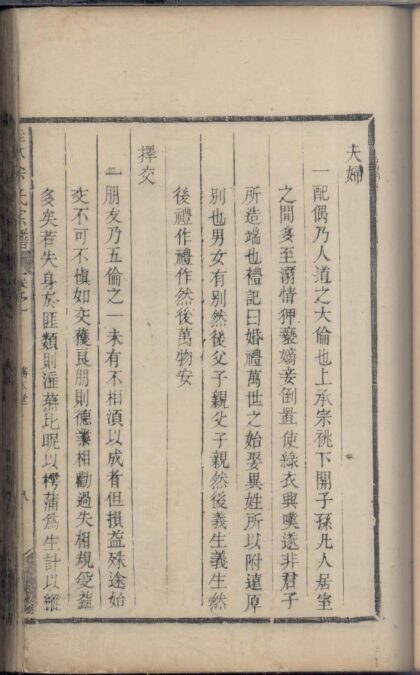 夫婦
一配偶乃人道之大倫也上承宗祧下關子孫凡人居室
之間多至溺情狎褻嫡妾倒置使綠衣興嘆遂非君子
所造端也禮記曰婚禮萬世之始娶異姓所以附遠厚
別也男女有別然後父子親父子親然後義生義生然
後禮作禮作然後萬物安
擇交
一朋友乃五倫之一未有不相湏以成者但損益殊途始
交不可不慎如交獲良朋則德業相勸過失相規受益
多矣若失身於匪類則滛蕪比昵以樗蒲為生計以縱
氏宗譜
八